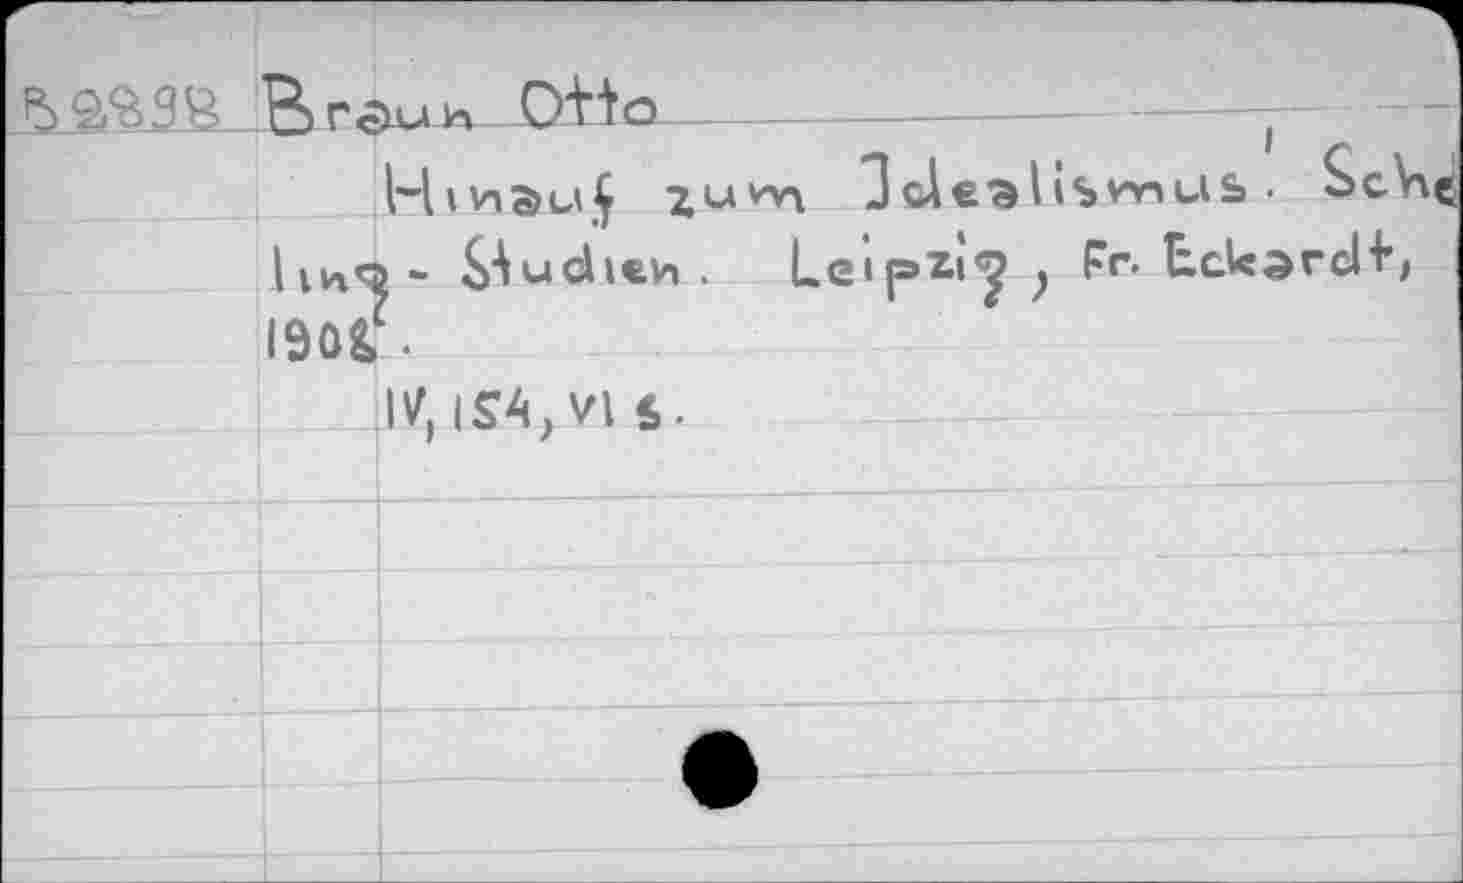 B22398 Braun Otto
Hinauf zum Idealismus! Sche
ling- Studien. Leipzig, Fr. Eckardt,
1908.
IV, 154, VI s.